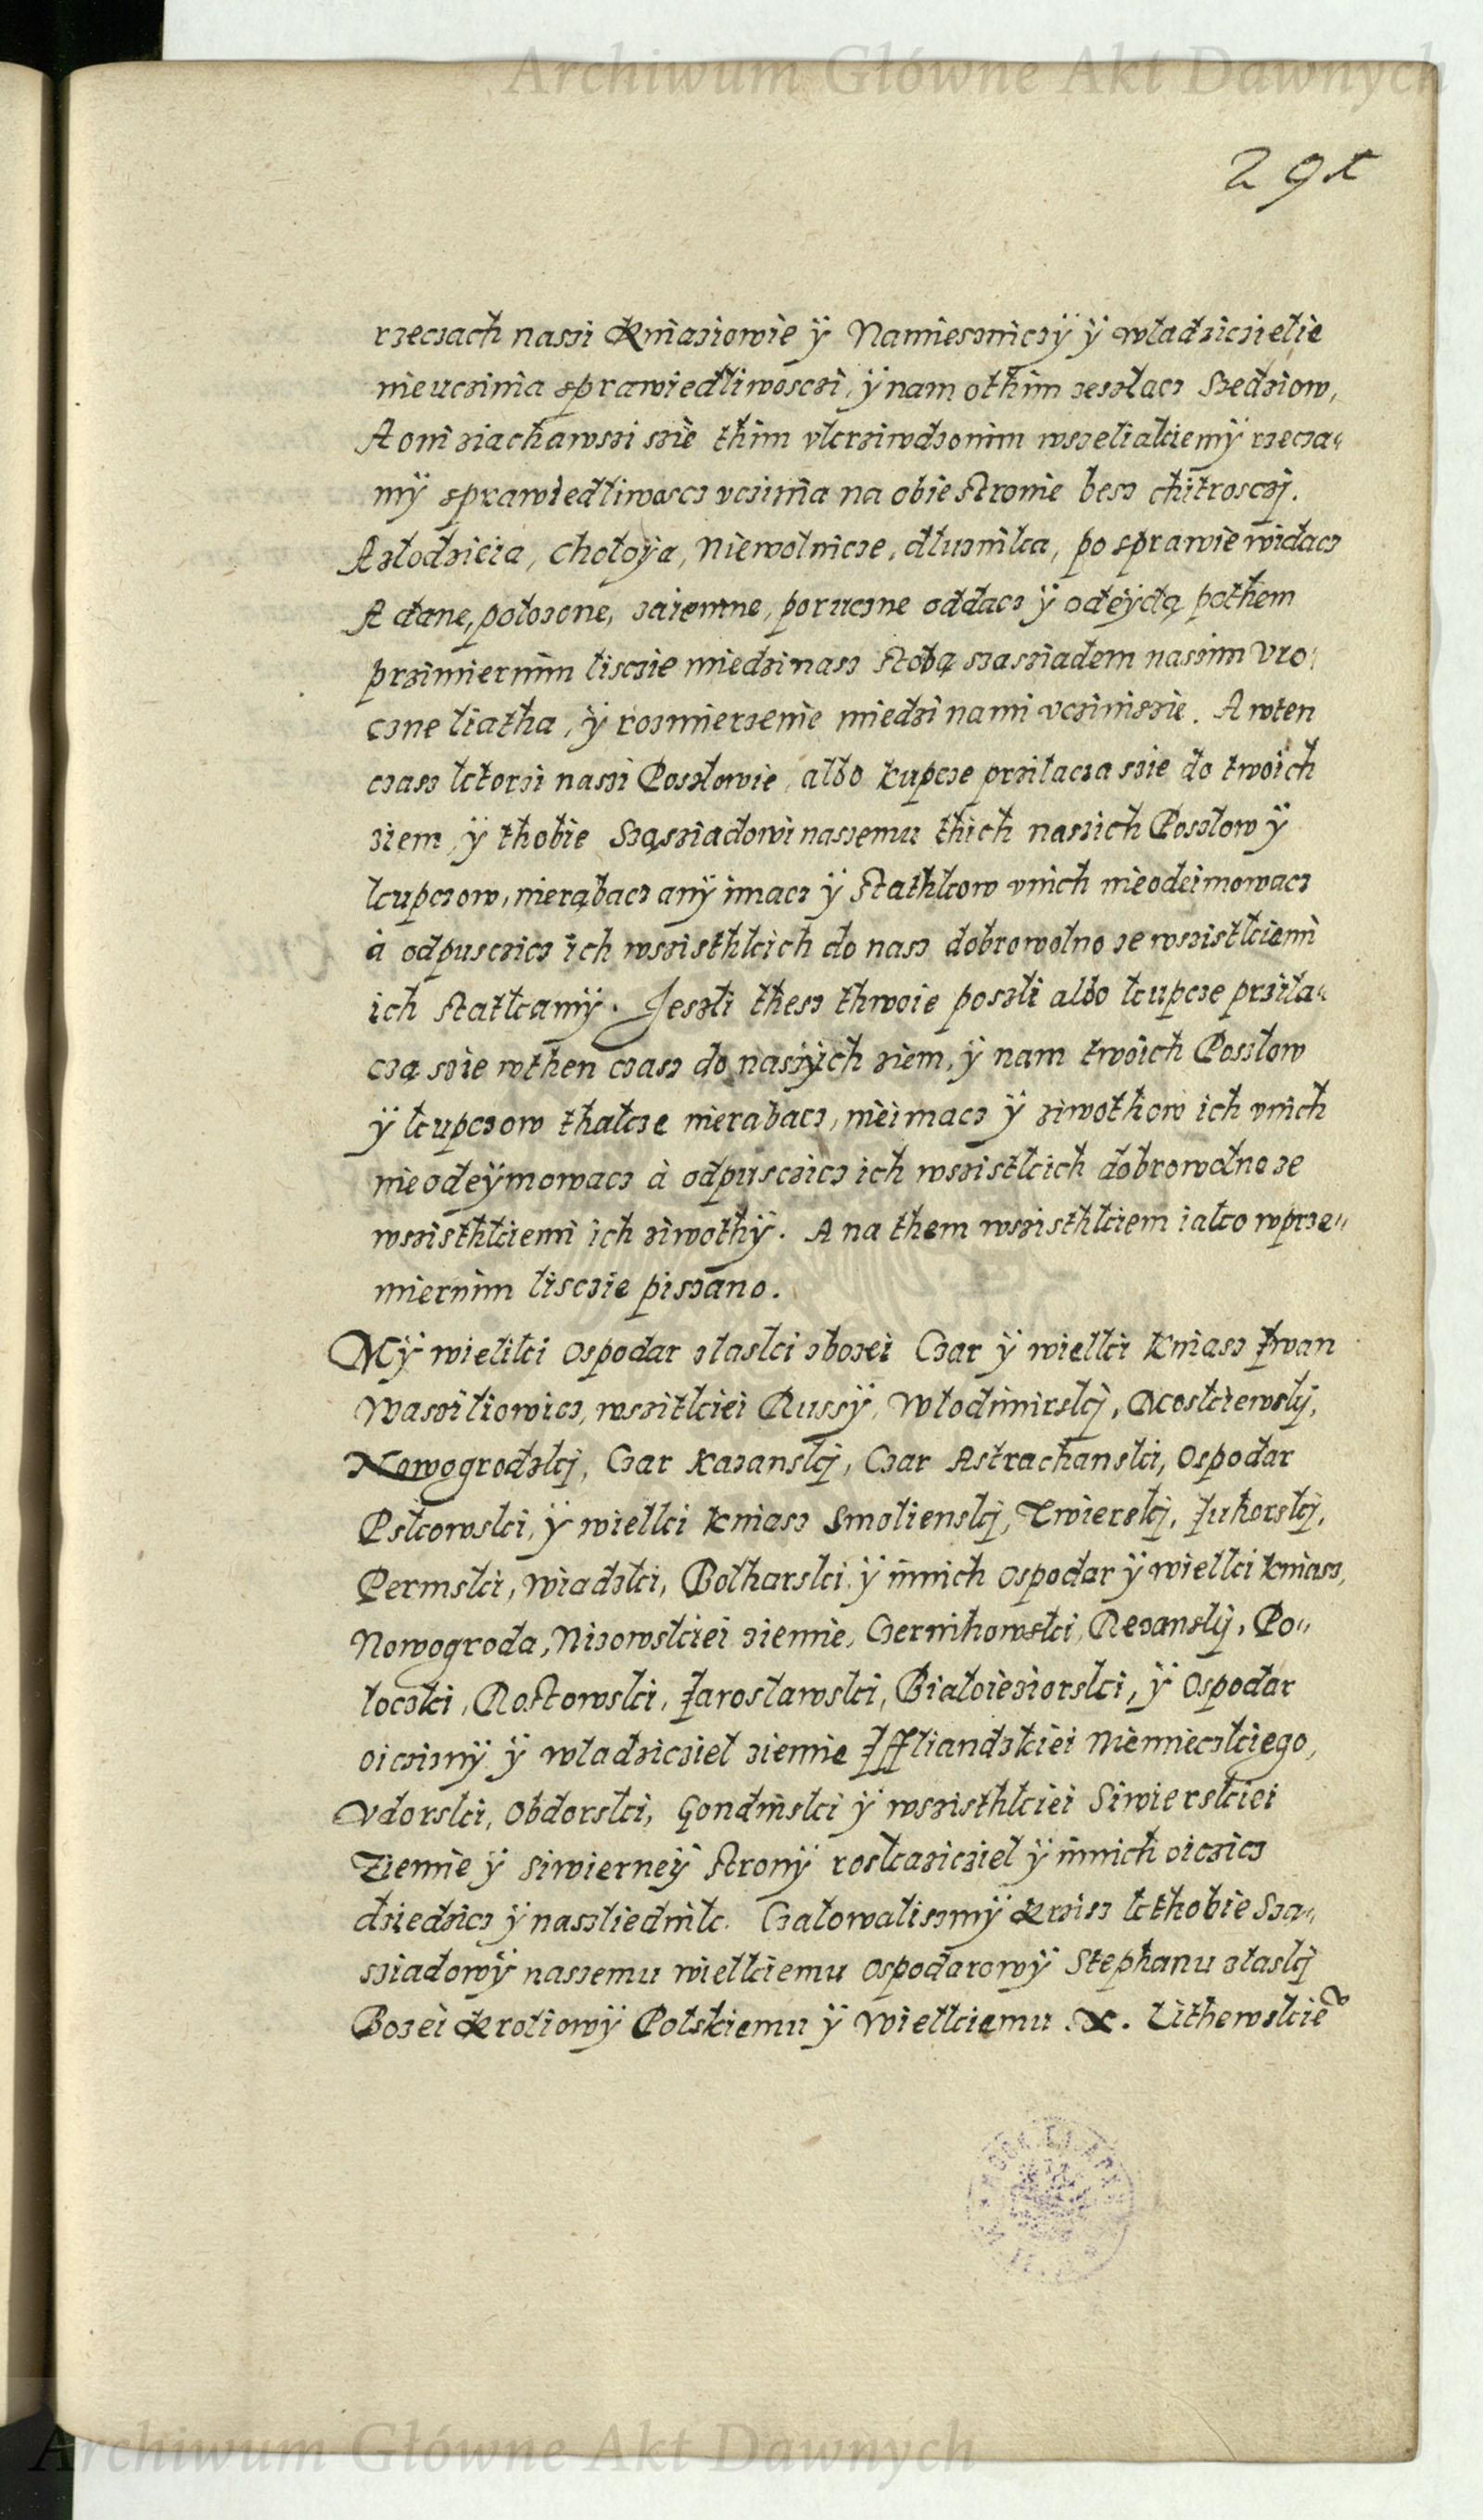 Archiwum Główne Akt Dawnych
291
rzeczach naszi Kniaziowie ÿ Namieszniczÿ ÿ wladziciełie
nieuczinia sprawiedliwosczi, ÿ nam othim zeszłacz Szedziow,
A oni ziachawszi szie thim vkrziwdzonim wszeliakiemÿ rzecza„
mÿ sprawiedliwoscz vczinia na obie stronie besz chitrosczj.
A złodzieia, chołoÿa, Niewolnicze, dłusznika, po sprawie widacz
A dane, położone, zaiemne, poruczne oddacz ÿ odeÿdą pothem
przimiernim lisczie miedzi nasz stobą szasziadem naszim vro„
czne liatha, ÿ rozmierzenie miedzi nami vcziniszie. A wten
czasz ktorzi naszi Poszłowie, albo kupcze prziłacza szie do twoich
ziem, ÿ thobie Sząsziadowi naszemu thich naszich Poszłow ÿ
kupczow, nierąbacz anÿ imacz ÿ Stathkow vnich nieodeimowacz
à odpusczicz ich wszisthkich do nasz dobrowolno ze wszistkiemi
ich statkamÿ. Jeszli thesz thwoie poszli albo kupcze prziła„
czą szie wthen czasz do naszÿch ziem, ÿ nam twoich Poszłow
ÿ kupczow thakze nierabacz, nieimacz ÿ ziwothow ich vnich
nieodeÿmowacz à odpusczicz ich wszistkich dobrowolno ze
wszisthkiemi ich ziwothÿ. A na them wszisthkiem iako wprze„
miernim lisczie piszano.
Mÿ wieliki Ospodar złaski zbozei Czar ÿ wielki Kniasz Iwan
Wasziliowicz, wszitkiei Russÿ, Włodimirskj, Moskiewskj,
Nowogrodzkj, Czar Kazanskj, Czar Astrachanski, Ospodar
Pskowski, ÿ wielki Kniasz Smolienskj, Twierskj, Iuhorskj,
Permski, Wiadzki, Bolharski, ÿ innich Ospodar ÿ wielki kniasz,
Nowogroda, Nizowskiei ziemie, Czernihowski, Rezanskj, Po„
loczki, Rostowski, Jarosławski, Białoieziorski, ÿ Ospodar
oiczinÿ ÿ władziciel ziemie Iffliandzkiei Niemieczkiego,
Vdorski, Obdorski, Gondinski ÿ wszisthkiei Siwierskiei
Ziemie ÿ Siwierneÿ Stronÿ roskaziciel ÿ innich oiczicz
dziedzicz ÿ naszliednik. Czałowaliszmÿ Krzisz kthobie Sza„
sziadowÿ naszemu wielkiemu Ospodarowÿ Stephanu złaskj
Bozei Kroliowÿ Polskiemu ÿ Wielkiemu X. Lithewskie
Archiwum Główne Akt Dawnych